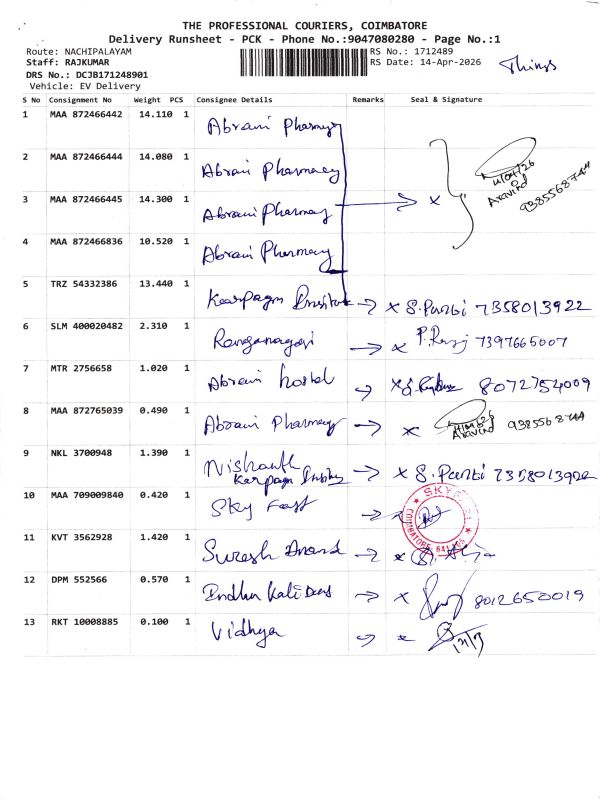 THE PROFESSIONAL COURIERS, COIMBATORE
Delivery Runsheet - PCK - Phone No.:9047080280 - Page No.:1
Route: NACHIPALAYAM RS No.: 1712489
Staff: RAJKUMAR RS Date: 14-Apr-2026 Things
DRS No.: DCJB171248901
Vehicle: EV Delivery
S No Consignment No Weight PCS Consignee Details Remarks Seal & Signature
1 MAA 872466442 14.110 1 Abrami Pharmacy
2 MAA 872466444 14.080 1 Abrami Pharmacy
14/04/26
Aravind
9385568744
3 MAA 872466445 14.300 1 Abrami Pharmacy → x
4 MAA 872466836 10.520 1 Abrami Pharmacy
5 TRZ 54332386 13.440 1 Karpagm → x S. 7358013922
6 SLM 400020482 2.310 1 → x P. 7397665007
7 MTR 2756658 1.020 1 Abrami hostel → x 8072754009
8 MAA 872765039 0.490 1 Abrami Pharmacy → x Aravind 9385568744
9 NKL 3700948 1.390 1 Nishanth
Karpagm → x S. 7358013922
10 MAA 709009840 0.420 1 Sky Fast → x
COIMBATORE
11 KVT 3562928 1.420 1 Suresh Anand → x
12 DPM 552566 0.570 1 Indhu Kali Dass → x 8012650019
13 RKT 10008885 0.100 1 Vidhya → x